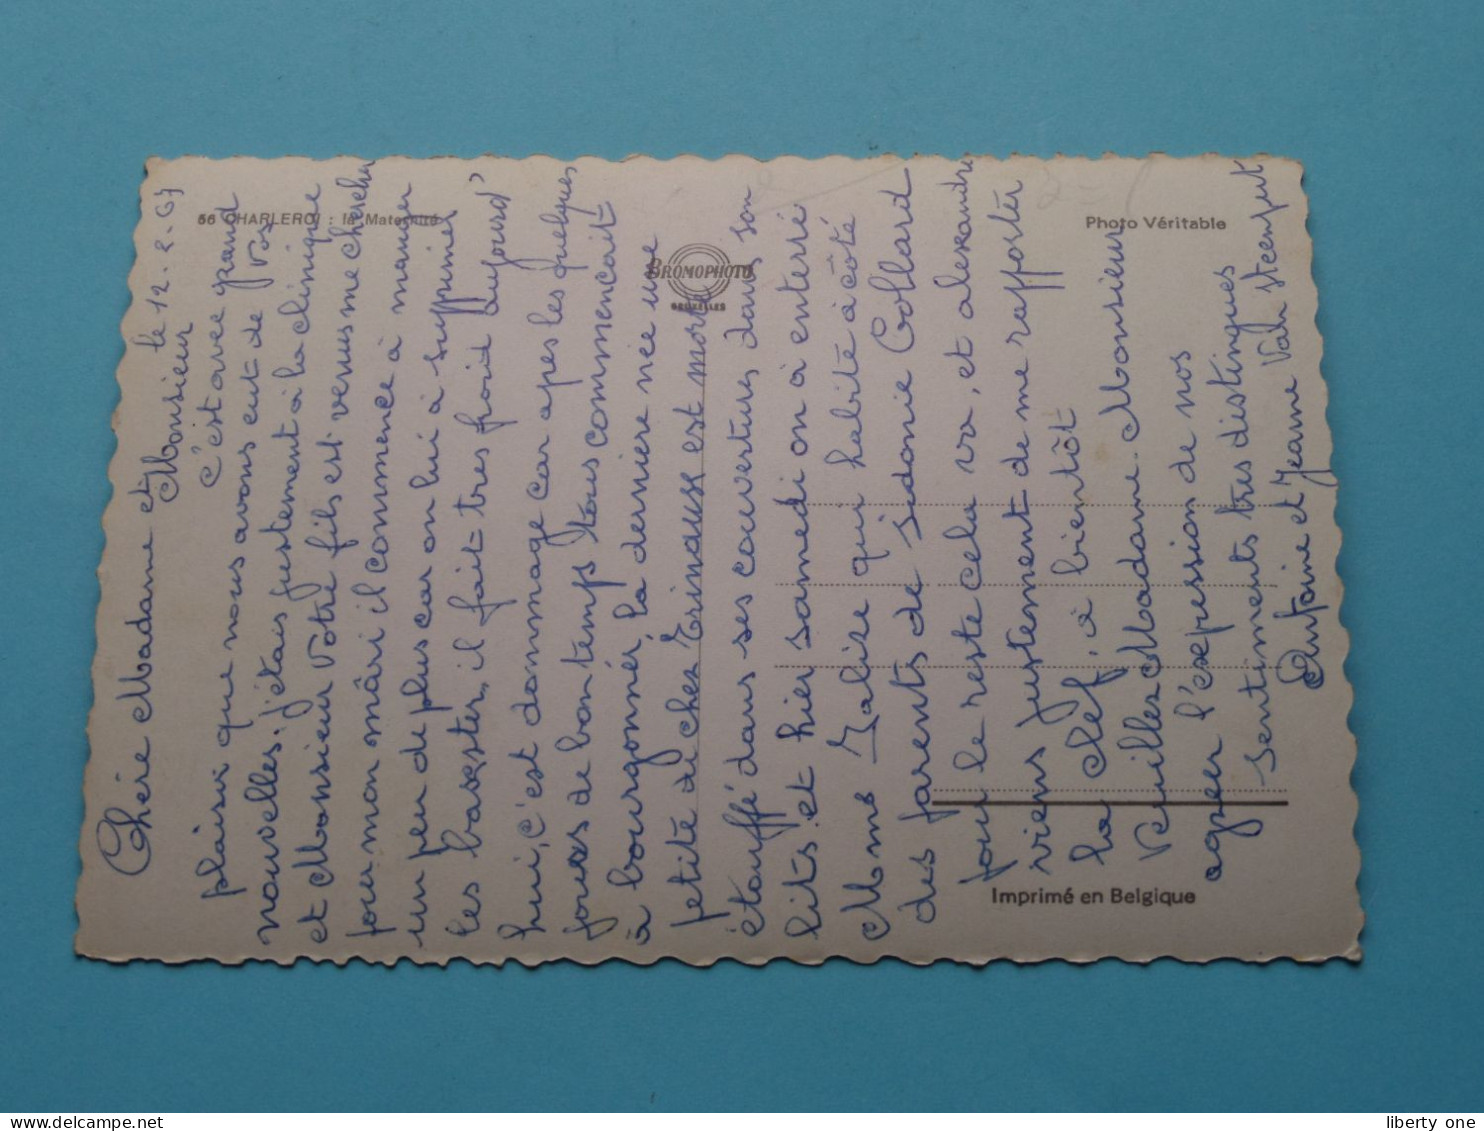 56 CHARLEROI : la Maternité
Photo Véritable
BROMOPHOTO
BRUXELLES
Imprimé en Belgique
le 12.2.67
Chère Madame et
Monsieur
c'est avec grand
plaisir que nous avons eut de Vos
nouvelles. j'étais justement à la clinique
et Monsieur Votre fils est venus me chercher
pour mon mâri il commence à manger
un peu de plus car on lui à supprimer
les baxster, il fait tres froid Aujourd'
hui, c'est dommage car apes les quelques
joures de bon temps tous commencait
à bourgonner, la derniere née une
petite de chez Erinause est morte
étouffé dans ses couvertures dans son
lits. et hier samedi on à enterré
Mme Malise qui habite à côté
des parents de sidonie Collard
pour le reste cela va, et alexandre
viens justement de me rapporter
la clef, à bientôt
Veuillez Madame. Monsieur
agreer l'expression de nos
sentiments tres distingues
Antoine et Jeanne Van steenput
liberty one